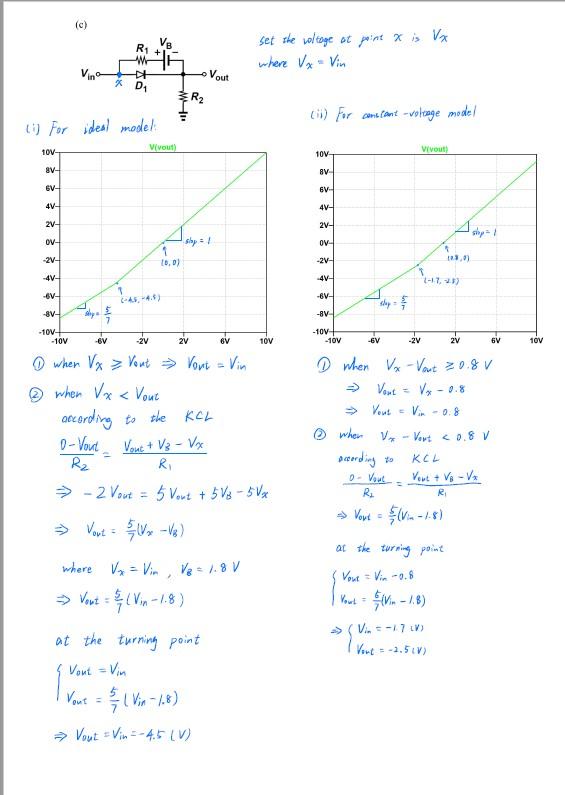 (c)
set the voltage at point x is Vx
where Vx = Vin
R1 + VB −
Vin x D1 Vout
R2
(i) For ideal model:
(ii) For constant-voltage model
V(vout)
10V
8V
6V
4V
2V
0V
-2V
-4V
-6V
-8V
-10V
-10V -6V -2V 2V 6V 10V
slop = 1
(0,0)
(-4.5, -4.5)
slop = 5/7
V(vout)
10V
8V
6V
4V
2V
0V
-2V
-4V
-6V
-8V
-10V
-10V -6V -2V 2V 6V 10V
slop = 1
(0.8, 0)
(-1.7, -2.5)
slop = 5/7
① when Vx ≥ Vout ⇒ Vout = Vin
② when Vx < Vout
according to the KCL
(0 - Vout)/R2 = (Vout + VB - Vx)/R1
⇒ -2Vout = 5Vout + 5VB - 5Vx
⇒ Vout = 5/7 (Vx - VB)
where Vx = Vin , VB = 1.8 V
⇒ Vout = 5/7 (Vin - 1.8)
at the turning point
{ Vout = Vin
Vout = 5/7 (Vin - 1.8)
⇒ Vout = Vin = -4.5 (V)
① when Vx - Vout ≥ 0.8 V
⇒ Vout = Vx - 0.8
⇒ Vout = Vin - 0.8
② when Vx - Vout < 0.8 V
according to KCL
(0 - Vout)/R2 = (Vout + VB - Vx)/R1
⇒ Vout = 5/7 (Vin - 1.8)
at the turning point
{ Vout = Vin - 0.8
Vout = 5/7 (Vin - 1.8)
⇒ { Vin = -1.7 (V)
Vout = -2.5 (V)